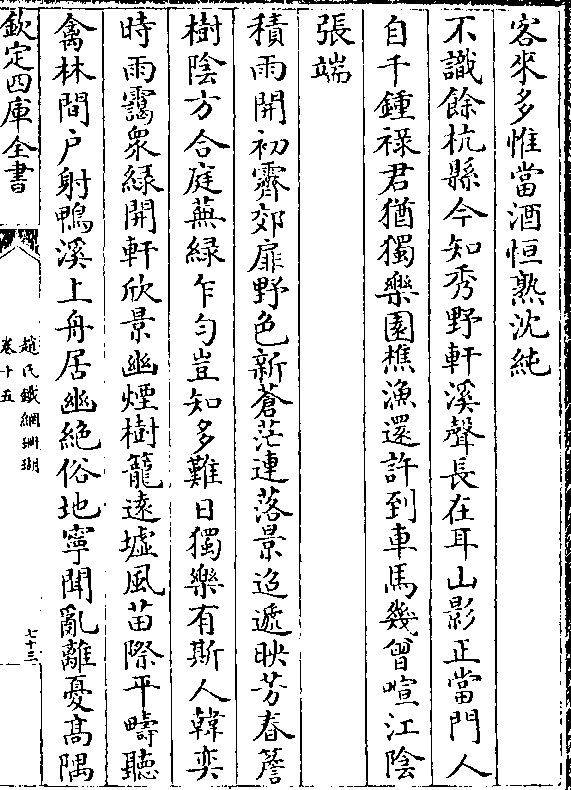 客來多惟當酒恒熟沈純
不識餘杭縣今知秀野軒溪聲長在耳山影正當門人
自千鍾祿君猶獨樂園樵漁還許到車馬幾曾喧江陰
張端
積雨開初霽郊扉野色新蒼茫連落景迢遞映芳春簷
樹陰方合庭蕪緑乍勻豈知多難日獨樂有斯人韓奕
時雨靄衆緑開軒欣景幽煙樹籠遠墟風苗際平疇聽
禽林間户射鴨溪上舟居幽絶俗地寧聞亂離憂高隅
欽定四庫全書
趙氏鐵網珊瑚
卷十五
七十三